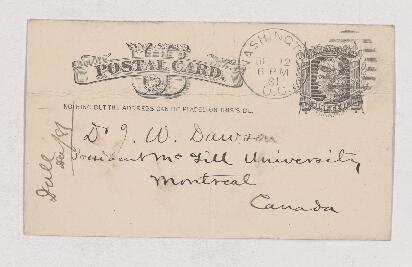 POSTAL CARD.
WASHINGTON
12
6 PM
81
D.C.
NOTHING BUT THE ADDRESS CAN BE PLACED ON THIS SIDE.
Dr J. W. Dawson
President McGill University
Montreal
Canada
Dall